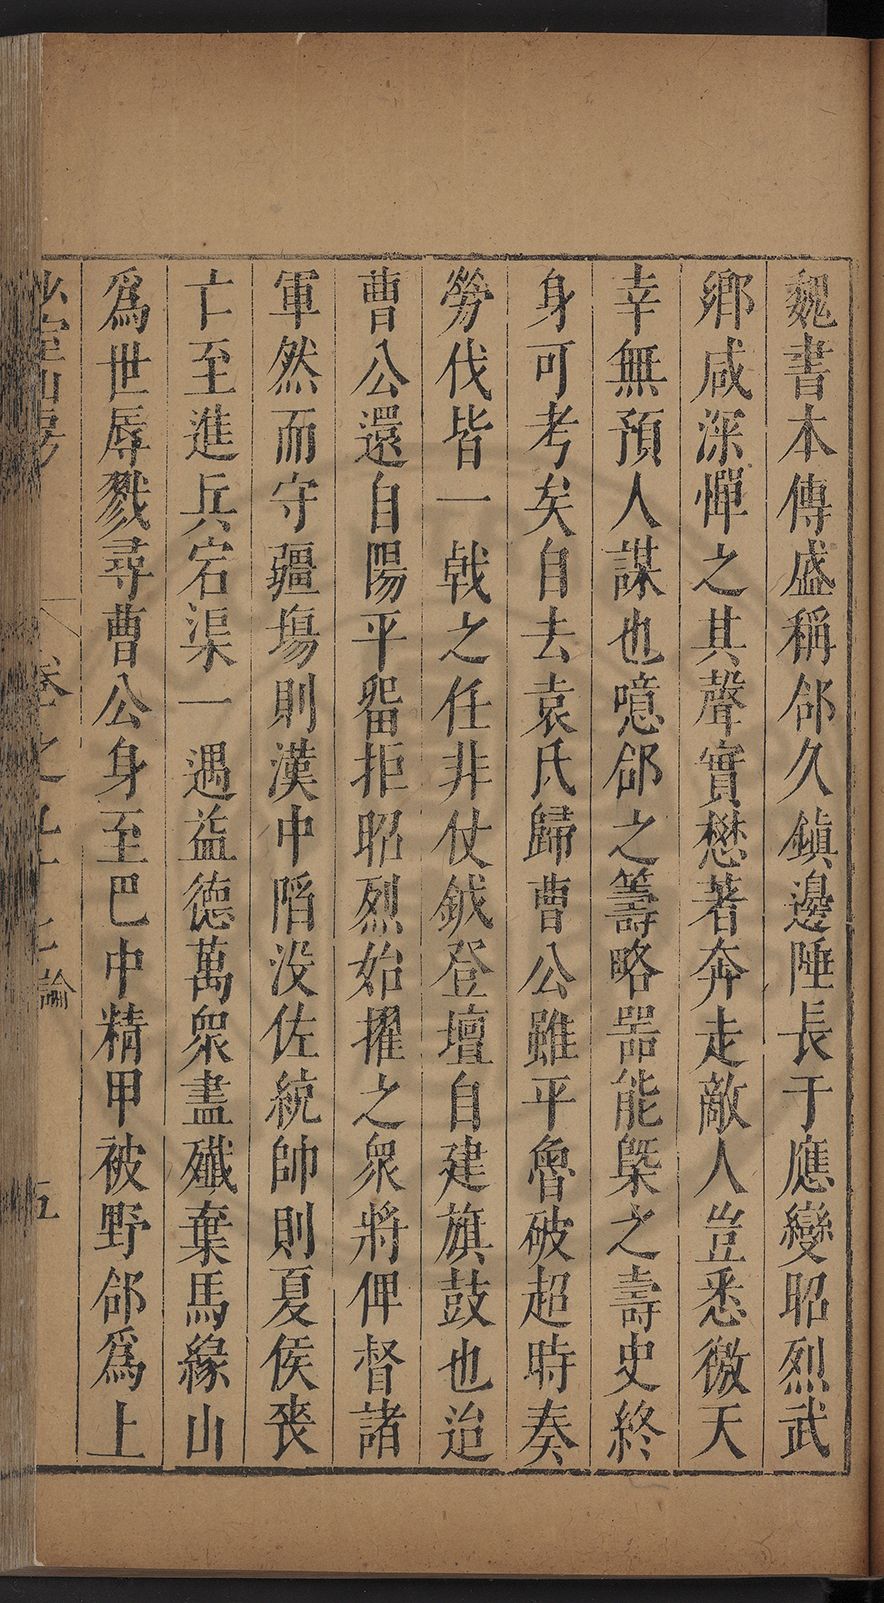 魏書本傳盛稱郃久鎮邊陲長于應變昭烈武
鄉咸深憚之其聲實懋著奔走敵人豈悉徼天
幸無預人謀也噫郃之籌略器能槩之壽史終
身可考矣自去袁氏歸曹公雖平魯破超時奏
勞伐皆一戟之任非仗鉞登壇自建旗鼓也迨
曹公還自陽平畱拒昭烈始擢之眾將俾督諸
軍然而守疆塲則漢中陷没佐統帥則夏侯喪
亡至進兵宕渠一遇益德萬眾盡殲棄馬緣山
爲世辱戮尋曹公身至巴中精甲被野郃爲上
卷之 七 論 五